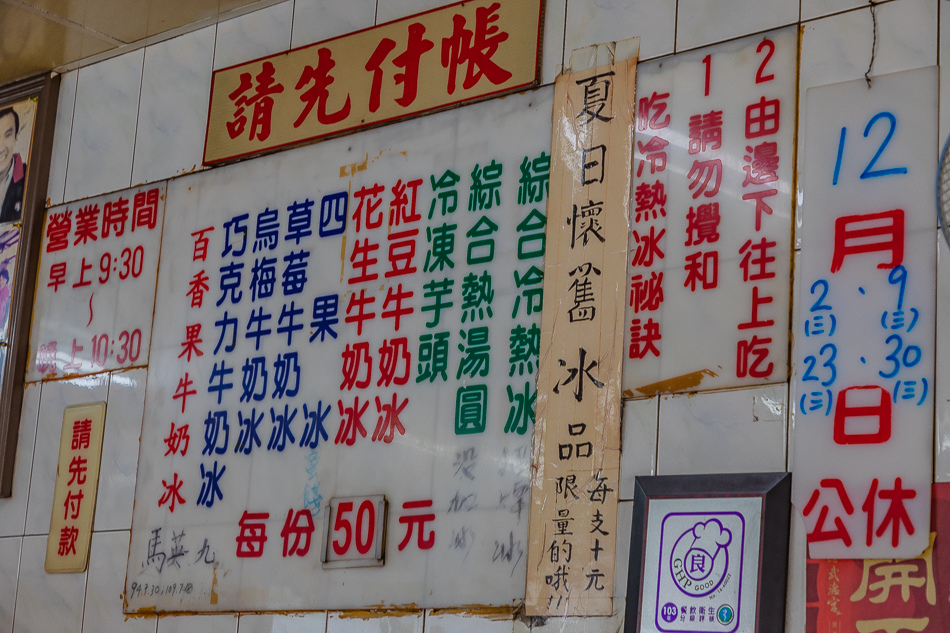 請先付帳
營業時間
早上9:30
～
晚上10:30
請先付款
綜合冷熱冰
綜合熱湯圓
冷凍芋頭
紅豆牛奶冰
花生牛奶冰
四果冰
草莓牛奶冰
烏梅牛奶冰
巧克力牛奶冰
百香果牛奶冰
每份50元
馬英九
夏日懷舊冰品
每支十元
限量的哦!!!
吃冷熱冰祕訣
1請勿攪和
2由邊下往上吃
12月
2(三)·9(三)
23(三)·30(三)
日
公休
良
GHP GOOD
103年
餐飲衛生
分級評核
開